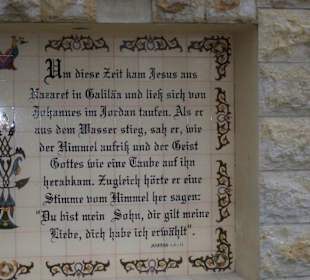 Um diese Zeit kam Jesus aus
Nazaret in Galiläa und ließ sich von
Johannes im Jordan taufen. Als er
aus dem Wasser stieg, sah er, wie
der Himmel aufriß und der Geist
Gottes wie eine Taube auf ihn
herabkam. Zugleich hörte er eine
Stimme vom Himmel her sagen:
"Du bist mein Sohn, dir gilt meine
Liebe, dich habe ich erwählt".